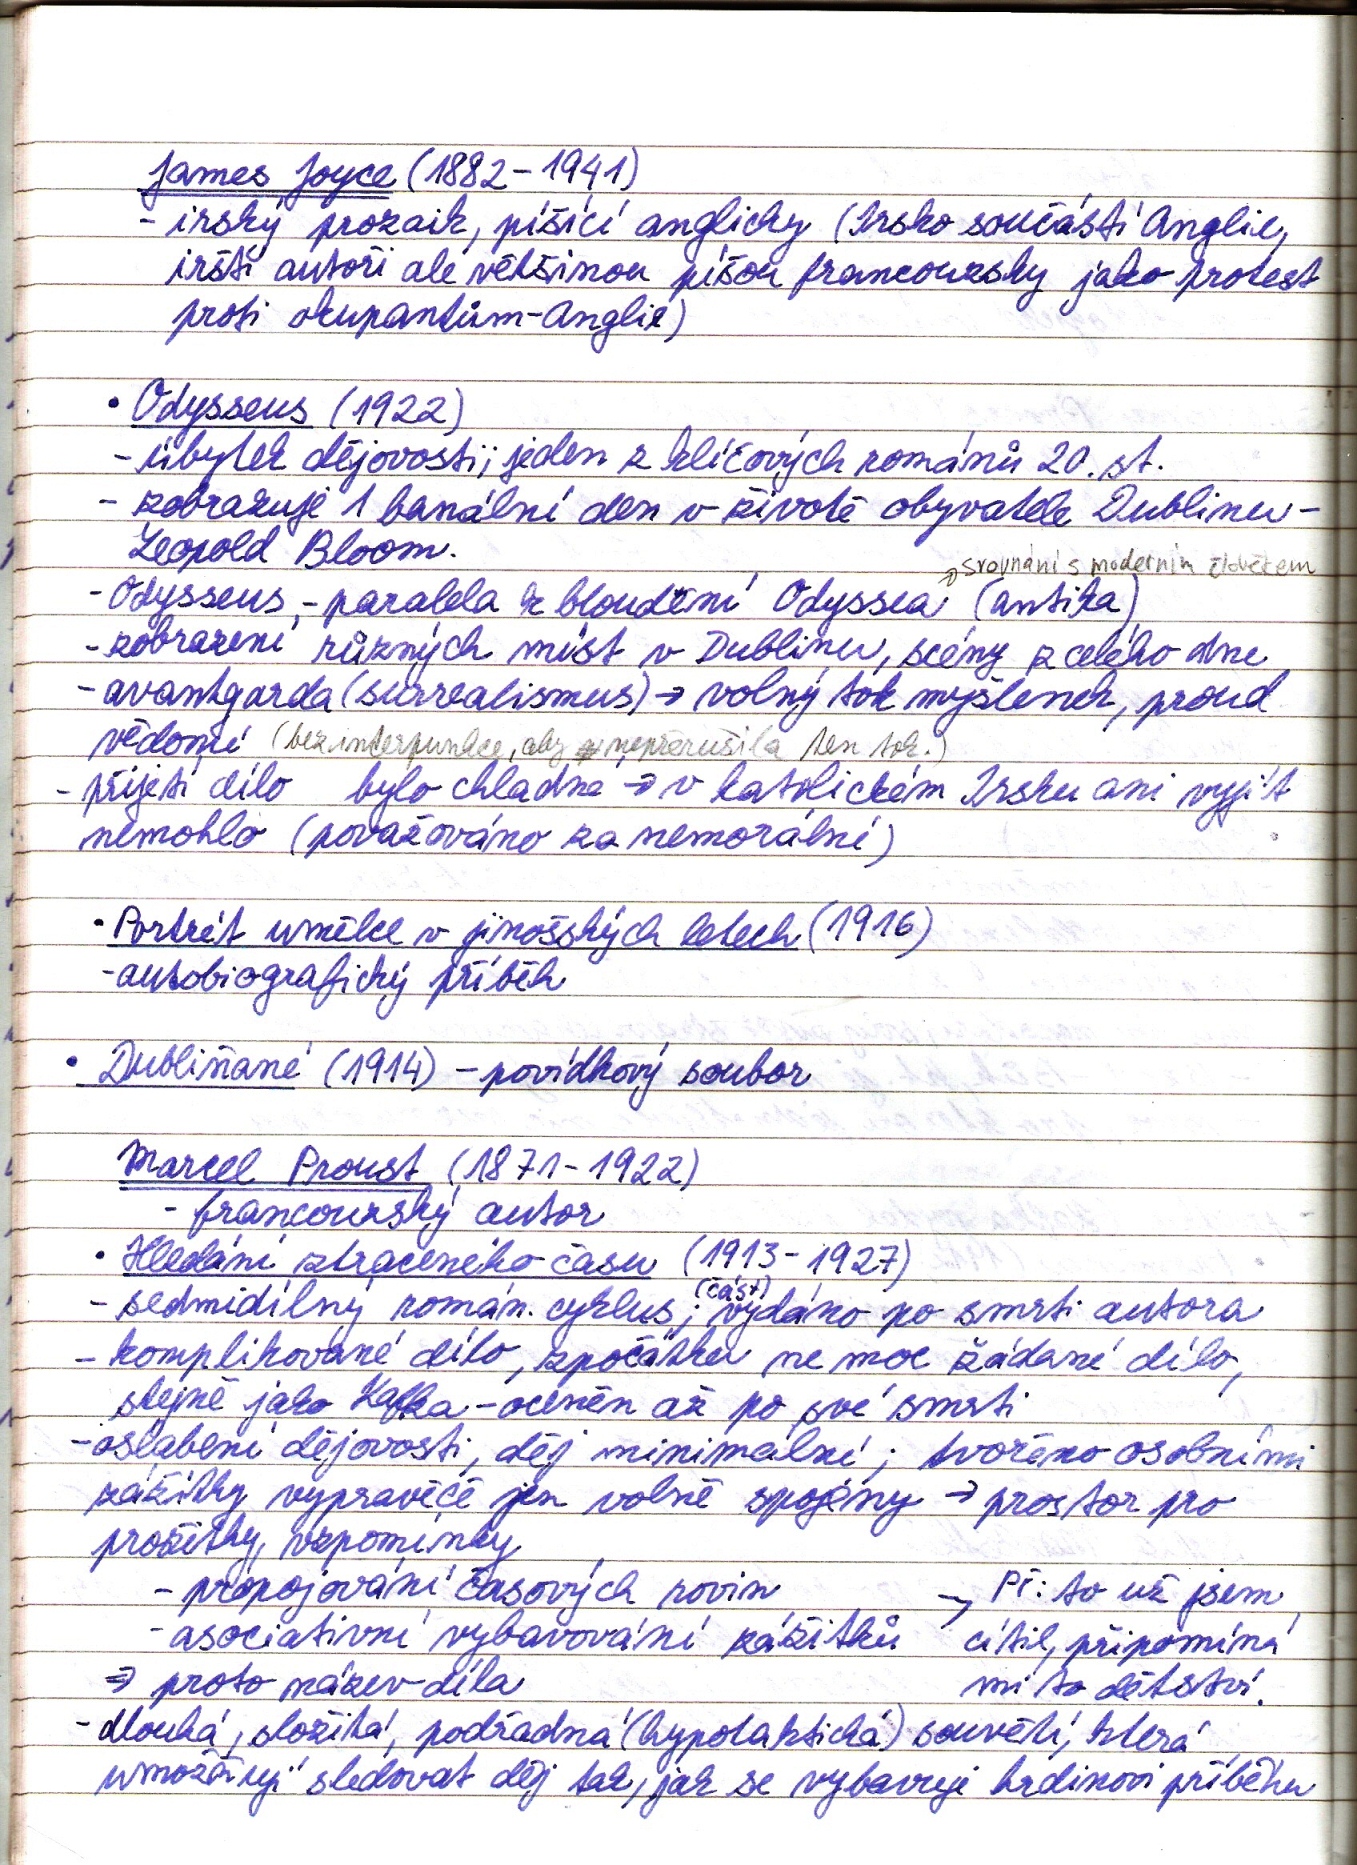 James Joyce (1882-1941)
- irský prozaik, píšící anglicky (Irsko součástí Anglie,
irští autoři ale většinou píšou francouzsky jako protest
proti okupantům-Anglie)
• Odysseus (1922)
- úbytek dějovosti; jeden z klíčových románů 20. st.
- zobrazuje 1 banální den v životě obyvatele Dublinu -
Leopold Bloom.
→ srovnání s moderním člověkem
- Odysseus - paralela k bloudění Odyssea (antika)
- zobrazení různých míst v Dublinu, scény z celého dne
- avantgarda (surrealismus) → volný tok myšlenek, proud
vědomí (bez interpunkce, aby nepřerušila ten tok.)
- přijetí dílo bylo chladné → v katolickém Irsku ani vyjít
nemohlo (považováno za nemorální)
• Portrét umělce v jinošských letech (1916)
- autobiografický příběh
• Dubliňané (1914) - povídkový soubor
Marcel Proust (1871-1922)
- francouzský autor
• Hledání ztraceného času (1913-1927)
- sedmidílný román. cyklus; (část) vydáno po smrti autora
- komplikované dílo, zpočátku ne moc žádané dílo,
stejně jako Kafka - oceněn až po své smrti
- oslabení dějovosti, děj minimální; tvořeno osobními
zážitky vypravěče jen volně spojeny → prostor pro
prožitky, vzpomínky
- propojování časových rovin
- asociativní vybavování zážitků → Př: to už jsem
cítil, připomíná
mi to dětství.
⇒ proto název díla
- dlouhá, složitá, podřadná (hypotaktická) souvětí, která
umožňují sledovat děj tak, jak se vybavuje hrdinovi příběhu